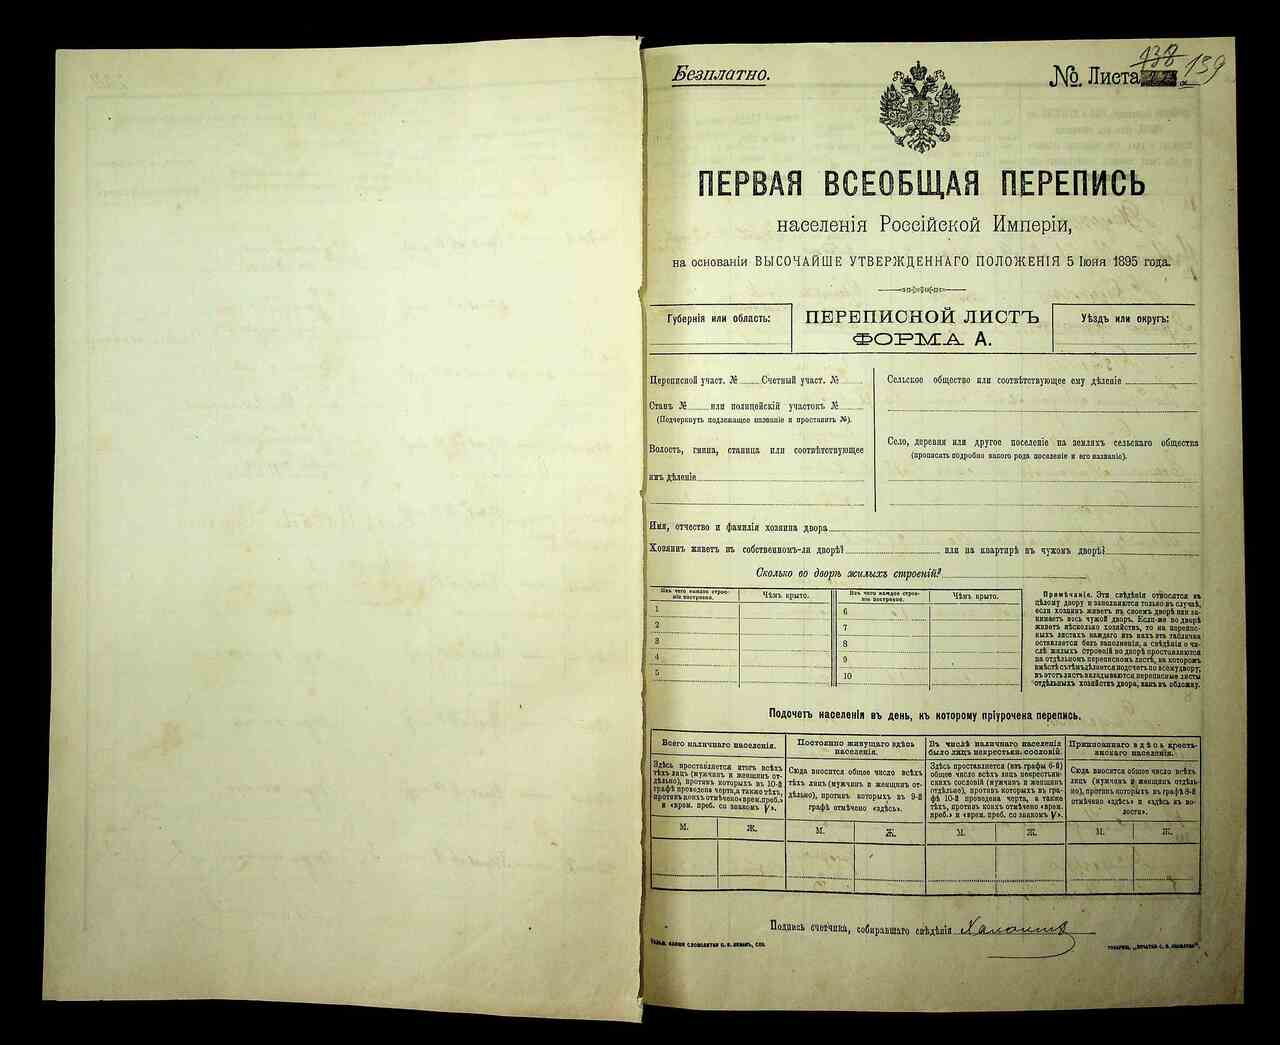 Безплатно.
№ Листа 139
ПЕРВАЯ ВСЕОБЩАЯ ПЕРЕПИСЬ
населенія Россійской Имперіи,
на основаніи ВЫСОЧАЙШЕ УТВЕРЖДЕННАГО ПОЛОЖЕНІЯ 5 Іюня 1895 года.
Губернія или область:
ПЕРЕПИСНОЙ ЛИСТЪ
ФОРМА А.
Уѣздъ или округъ:
Переписной участ. № Счетный участ. №
Станъ № или полицейскій участокъ №
(Подчеркнуть подлежащее названіе и проставить №).
Волость, гмина, станица или соотвѣтствующее
имъ дѣленіе
Сельское общество или соотвѣтствующее ему дѣленіе
Село, деревня или другое поселеніе на земляхъ сельскаго общества
(прописать подробно какого рода поселеніе и его названіе).
Имя, отчество и фамилія хозяина двора
Хозяинъ живетъ въ собственномъ-ли дворѣ? или на квартирѣ въ чужомъ дворѣ?
Сколько во дворѣ жилыхъ строеній?
Изъ чего каждое строе-
ніе построено.
Чѣмъ крыто.
1
2
3
4
5
Изъ чего каждое строе-
ніе построено.
Чѣмъ крыто.
6
7
8
9
10
Примѣчаніе. Эти свѣдѣнія относятся къ
цѣлому двору и заполняются только въ случаѣ,
если хозяинъ живетъ въ своемъ дворѣ или за-
нимаетъ весь чужой дворъ. Если-же во дворѣ
живетъ нѣсколько хозяйствъ, то на перепис-
ныхъ листахъ каждаго изъ нихъ эта табличка
оставляется безъ заполненія, а свѣдѣнія о чи-
слѣ жилыхъ строеній во дворѣ проставляются
на отдѣльномъ переписномъ листѣ, на которомъ
вмѣстѣ съ тѣмъ дѣлается подсчетъ по всему двору;
въ этотъ листъ вкладываются переписные листы
отдѣльныхъ хозяйствъ двора, какъ въ обложку.
Подсчетъ населенія въ день, къ которому пріурочена перепись.
Всего наличнаго населенія.
Здѣсь проставляется итогъ всѣхъ
тѣхъ лицъ (мужчинъ и женщинъ от-
дѣльно), противъ которыхъ въ 10-й
графѣ проведена черта, а также тѣхъ,
противъ коихъ отмѣчено «врем. преб.»
и «врем. преб. со знакомъ V».
М. Ж.
Постоянно живущаго здѣсь
населенія.
Сюда вносится общее число всѣхъ
тѣхъ лицъ (мужчинъ и женщинъ от-
дѣльно), противъ которыхъ въ 9-й
графѣ отмѣчено «здѣсь».
М. Ж.
Въ числѣ наличнаго населенія
было лицъ некрестьян. сословій.
Здѣсь проставляется (изъ графы 6-й)
общее число всѣхъ лицъ некрестьян-
скихъ сословій (мужчинъ и женщинъ
отдѣльно), противъ которыхъ въ гра-
фѣ 10-й проведена черта, а также
тѣхъ, противъ коихъ отмѣчено «врем.
преб.» и «врем. преб. со знакомъ V».
М. Ж.
Приписаннаго здѣсь кресть-
янскаго населенія.
Сюда вносится общее число всѣхъ
лицъ (мужчинъ и женщинъ отдѣль-
но), противъ которыхъ въ графѣ 8-й
отмѣчено «здѣсь» и «здѣсь къ во-
лости».
М. Ж.
Подпись счетчика, собиравшаго свѣдѣнія